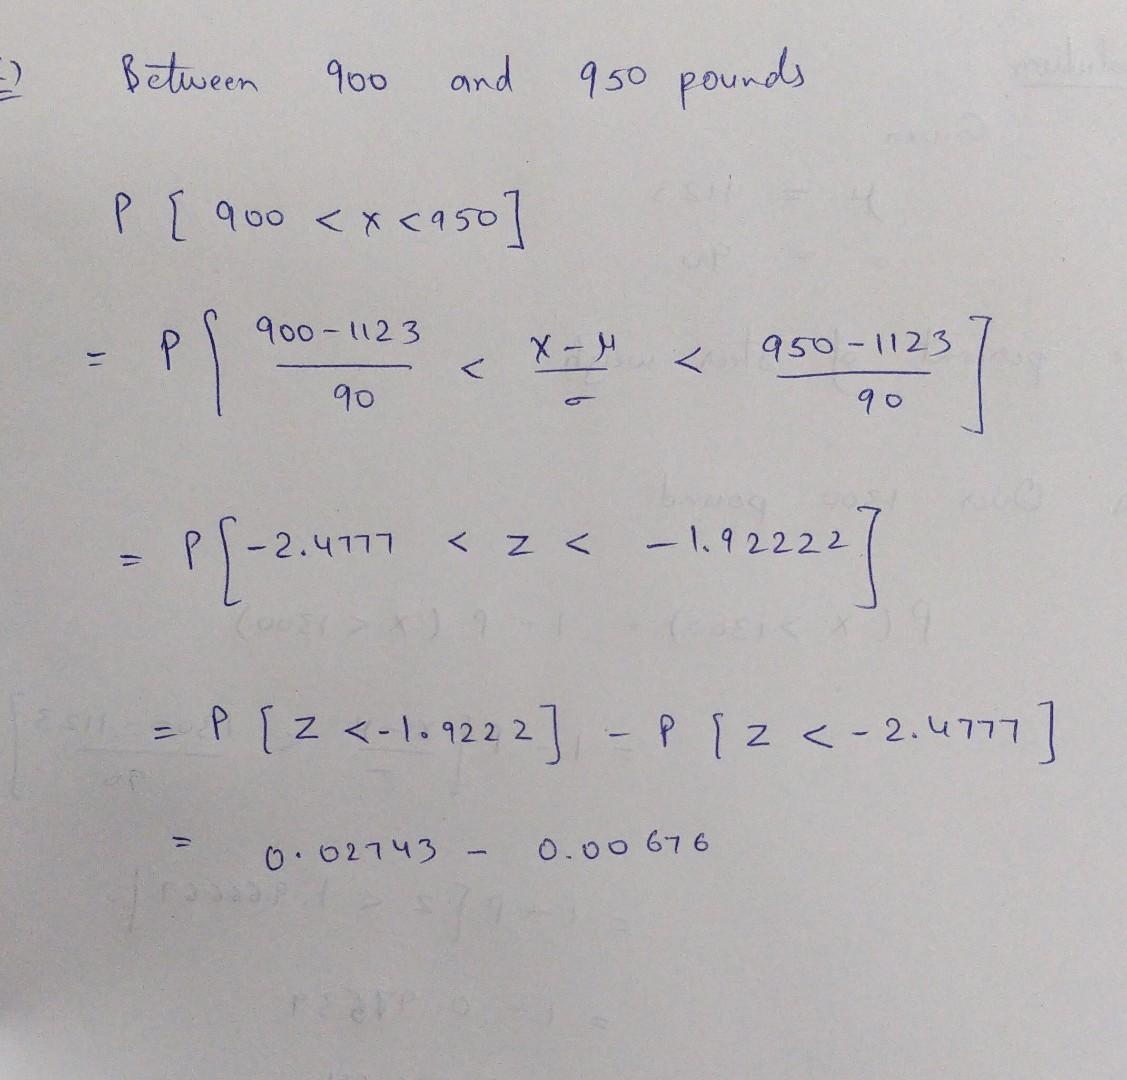 Between 900 and 950 pounds
P [ 900 < x < 950 ]
= P [ 900-1123 / 90 < x-μ / σ < 950-1123 / 90 ]
= P [ -2.4777 < z < -1.92222 ]
= P [ Z < -1.9222 ] - P [ z < -2.4777 ]
= 0.02743 - 0.00676